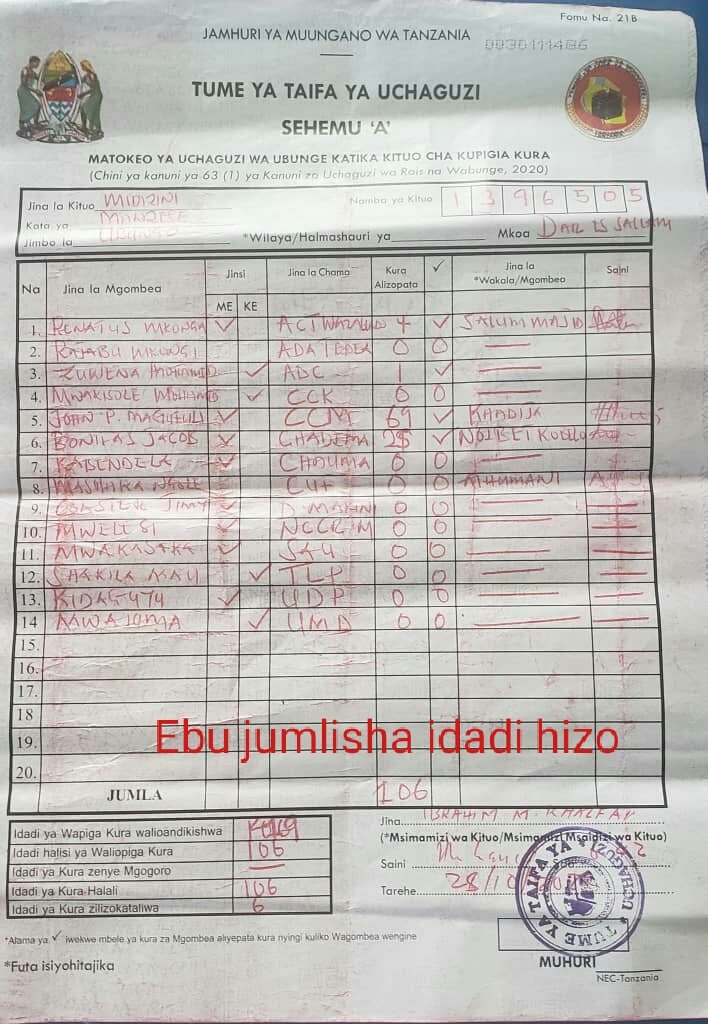 Fomu Na. 21B
JAMHURI YA MUUNGANO WA TANZANIA
0030111486
TUME YA TAIFA YA UCHAGUZI
SEHEMU 'A'
MATOKEO YA UCHAGUZI WA UBUNGE KATIKA KITUO CHA KUPIGIA KURA
(Chini ya kanuni ya 63 (1) ya Kanuni za Uchaguzi wa Rais na Wabunge, 2020)
Jina la Kituo MIDIZINI Namba ya Kituo 1 3 9 6 5 0 5
Kata ya MANZESE
Jimbo la UBUNGO *Wilaya/Halmashauri ya Mkoa DAR ES SALAAM
Na Jina la Mgombea Jinsi Jina la Chama Kura Alizopata ✓ Jina la *Wakala/Mgombea Saini
ME KE
1. RENATUS MKONGA ✓ ACT WAZALENDO 4 ✓ SALUM MAJID
2. RAJABU ADA TADEA 0 0 —
3. ZUWENA MOHAMED ✓ ADC 1 ✓ —
4. MWAKISOLE MOHAMED ✓ CCK 0 0 —
5. JOHN P. MAGUFULI ✓ CCM 69 ✓ KHADIJA
6. BONIFAS JACOB ✓ CHADEMA ✓
7. KABENDELA ✓ CHAUMA 0 0 —
8. MASHIKA ✓ CUF 0 0 MHUMANI
9. ✓ D. MAKINI 0 0 — —
10. MWELESI ✓ NCCR M 0 0 — —
11. MWAKASAKA ✓ SAU 0 0 — —
12. SHAKILA ✓ TLP 0 0 — —
13. ✓ UDP 0 0 — —
14 MWAJUMA ✓ UMD 0 0 — —
15.
16.
17.
18
Ebu jumlisha idadi hizo
19.
20.
JUMLA 106
Jina IBRAHIM M. KHALFAN
(*Msimamizi wa Kituo/Msimamizi Msaidizi wa Kituo)
Saini
Tarehe 28/10/2020
Idadi ya Wapiga Kura walioandikishwa
Idadi halisi ya Waliopiga Kura 106
Idadi ya Kura zenye Mgogoro —
Idadi ya Kura Halali 106
Idadi ya Kura zilizokataliwa 6
TUME YA TAIFA YA UCHAGUZI
*Alama ya ✓ iwekwe mbele ya kura za Mgombea aliyepata kura nyingi kuliko Wagombea wengine
*Futa isiyohitajika
MUHURI
NEC-Tanzania